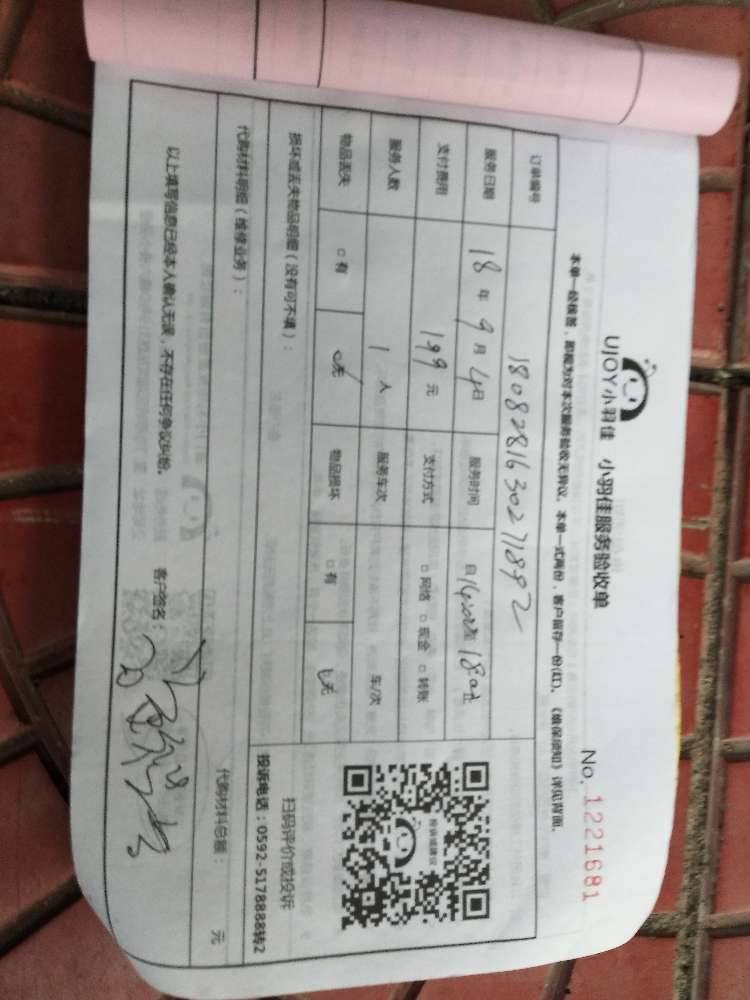 UJOY小羽佳 小羽佳服务验收单
No. 1221681
本单一经核签，即视为对本次服务验收无异议。本单一式两份，客户留存一份(红)。《维保须知》详见背面。
订单编号 1808281630271892
服务日期 18年9月4日 服务时间 自14:00至18:00止
支付费用 199元 支付方式 □网络 □现金 □转账
服务人数 1人 服务车次 车/次
物品丢失 □有 □无 物品损坏 □有 □无
损坏或丢失物品明细（没有可不填）：
投诉或建议
扫码评价或投诉
投诉电话：0592-5178888转2
代购材料明细（维修业务）： 代购材料总额： 元
以上填写信息已经本人确认无误，不存在任何争议纠纷。 客户签名：